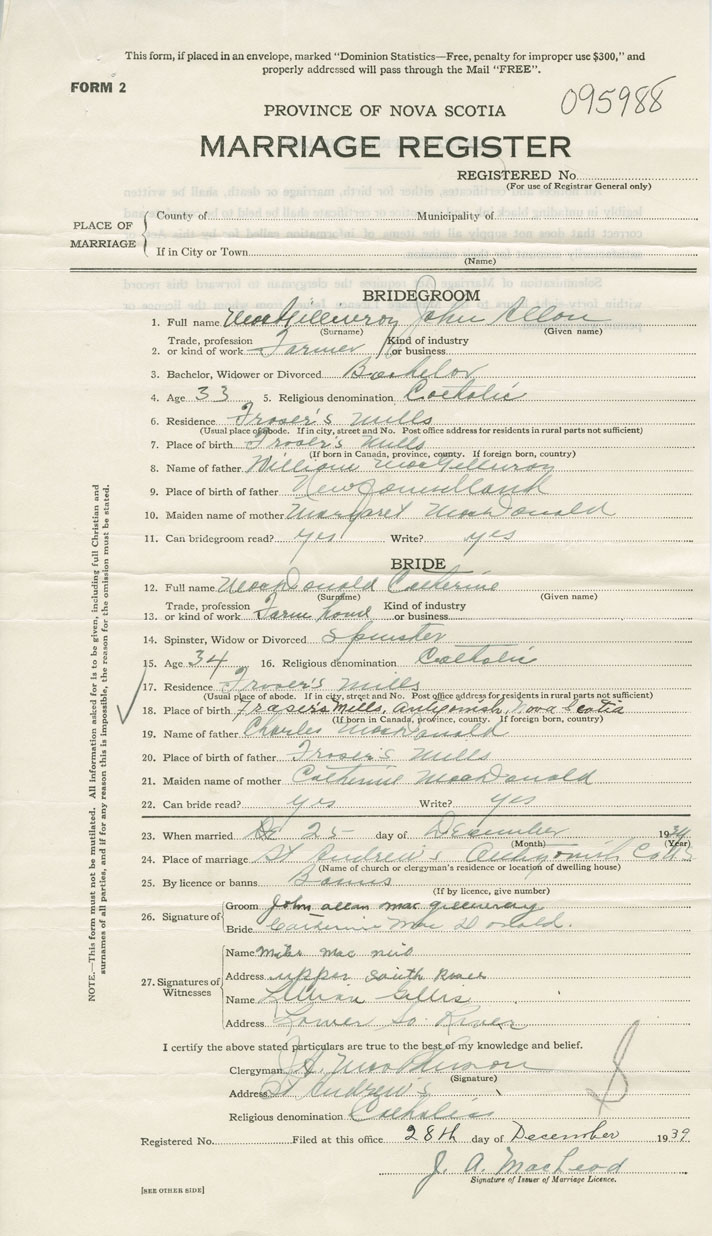 This form, if placed in an envelope, marked "Dominion Statistics—Free, penalty for improper use $300," and
properly addressed will pass through the Mail "FREE".
FORM 2
095988
PROVINCE OF NOVA SCOTIA
MARRIAGE REGISTER
REGISTERED No.
(For use of Registrar General only)
PLACE OF MARRIAGE
County of Municipality of
If in City or Town
(Name)
BRIDEGROOM
1. Full name MacGillivray John Allan
(Surname) (Given name)
2. Trade, profession or kind of work Farmer Kind of industry or business
3. Bachelor, Widower or Divorced Bachelor
4. Age 33 5. Religious denomination Catholic
6. Residence Fraser's Mills
(Usual place of abode. If in city, street and No. Post office address for residents in rural parts not sufficient)
7. Place of birth Fraser's Mills
(If born in Canada, province, county. If foreign born, country)
8. Name of father William MacGillivray
9. Place of birth of father Newfoundland
10. Maiden name of mother Margaret MacDonald
11. Can bridegroom read? yes Write? yes
BRIDE
12. Full name MacDonald Catherine
(Surname) (Given name)
13. Trade, profession or kind of work Farm home Kind of industry or business
14. Spinster, Widow or Divorced Spinster
15. Age 34 16. Religious denomination Catholic
17. Residence Fraser's Mills
(Usual place of abode. If in city, street and No. Post office address for residents in rural parts not sufficient)
18. Place of birth Fraser's Mills, Antigonish, Nova Scotia
(If born in Canada, province, county. If foreign born, country)
19. Name of father Charles MacDonald
20. Place of birth of father Fraser's Mills
21. Maiden name of mother Catherine MacDonald
22. Can bride read? yes Write? yes
23. When married 25 day of December 1939
(Month) (Year)
24. Place of marriage St Andrew's Antigonish Co
(Name of church or clergyman's residence or location of dwelling house)
25. By licence or banns Banns
(If by licence, give number)
26. Signature of
Groom John allan mac gillivray
Bride Catherine Mac Donald.
27. Signatures of Witnesses
Name mac neil
Address upper South River
Name Gillis
Address Lower So. River
I certify the above stated particulars are true to the best of my knowledge and belief.
Clergyman MacPherson
(Signature)
Address St Andrew's
Religious denomination Catholic
Registered No. Filed at this office 28th day of December 1939
J. A. MacLeod
Signature of Issuer of Marriage Licence.
[SEE OTHER SIDE]
NOTE.—This form must not be mutilated. All information asked for is to be given, including full Christian and
surnames of all parties, and if for any reason this is impossible, the reason for the omission must be stated.